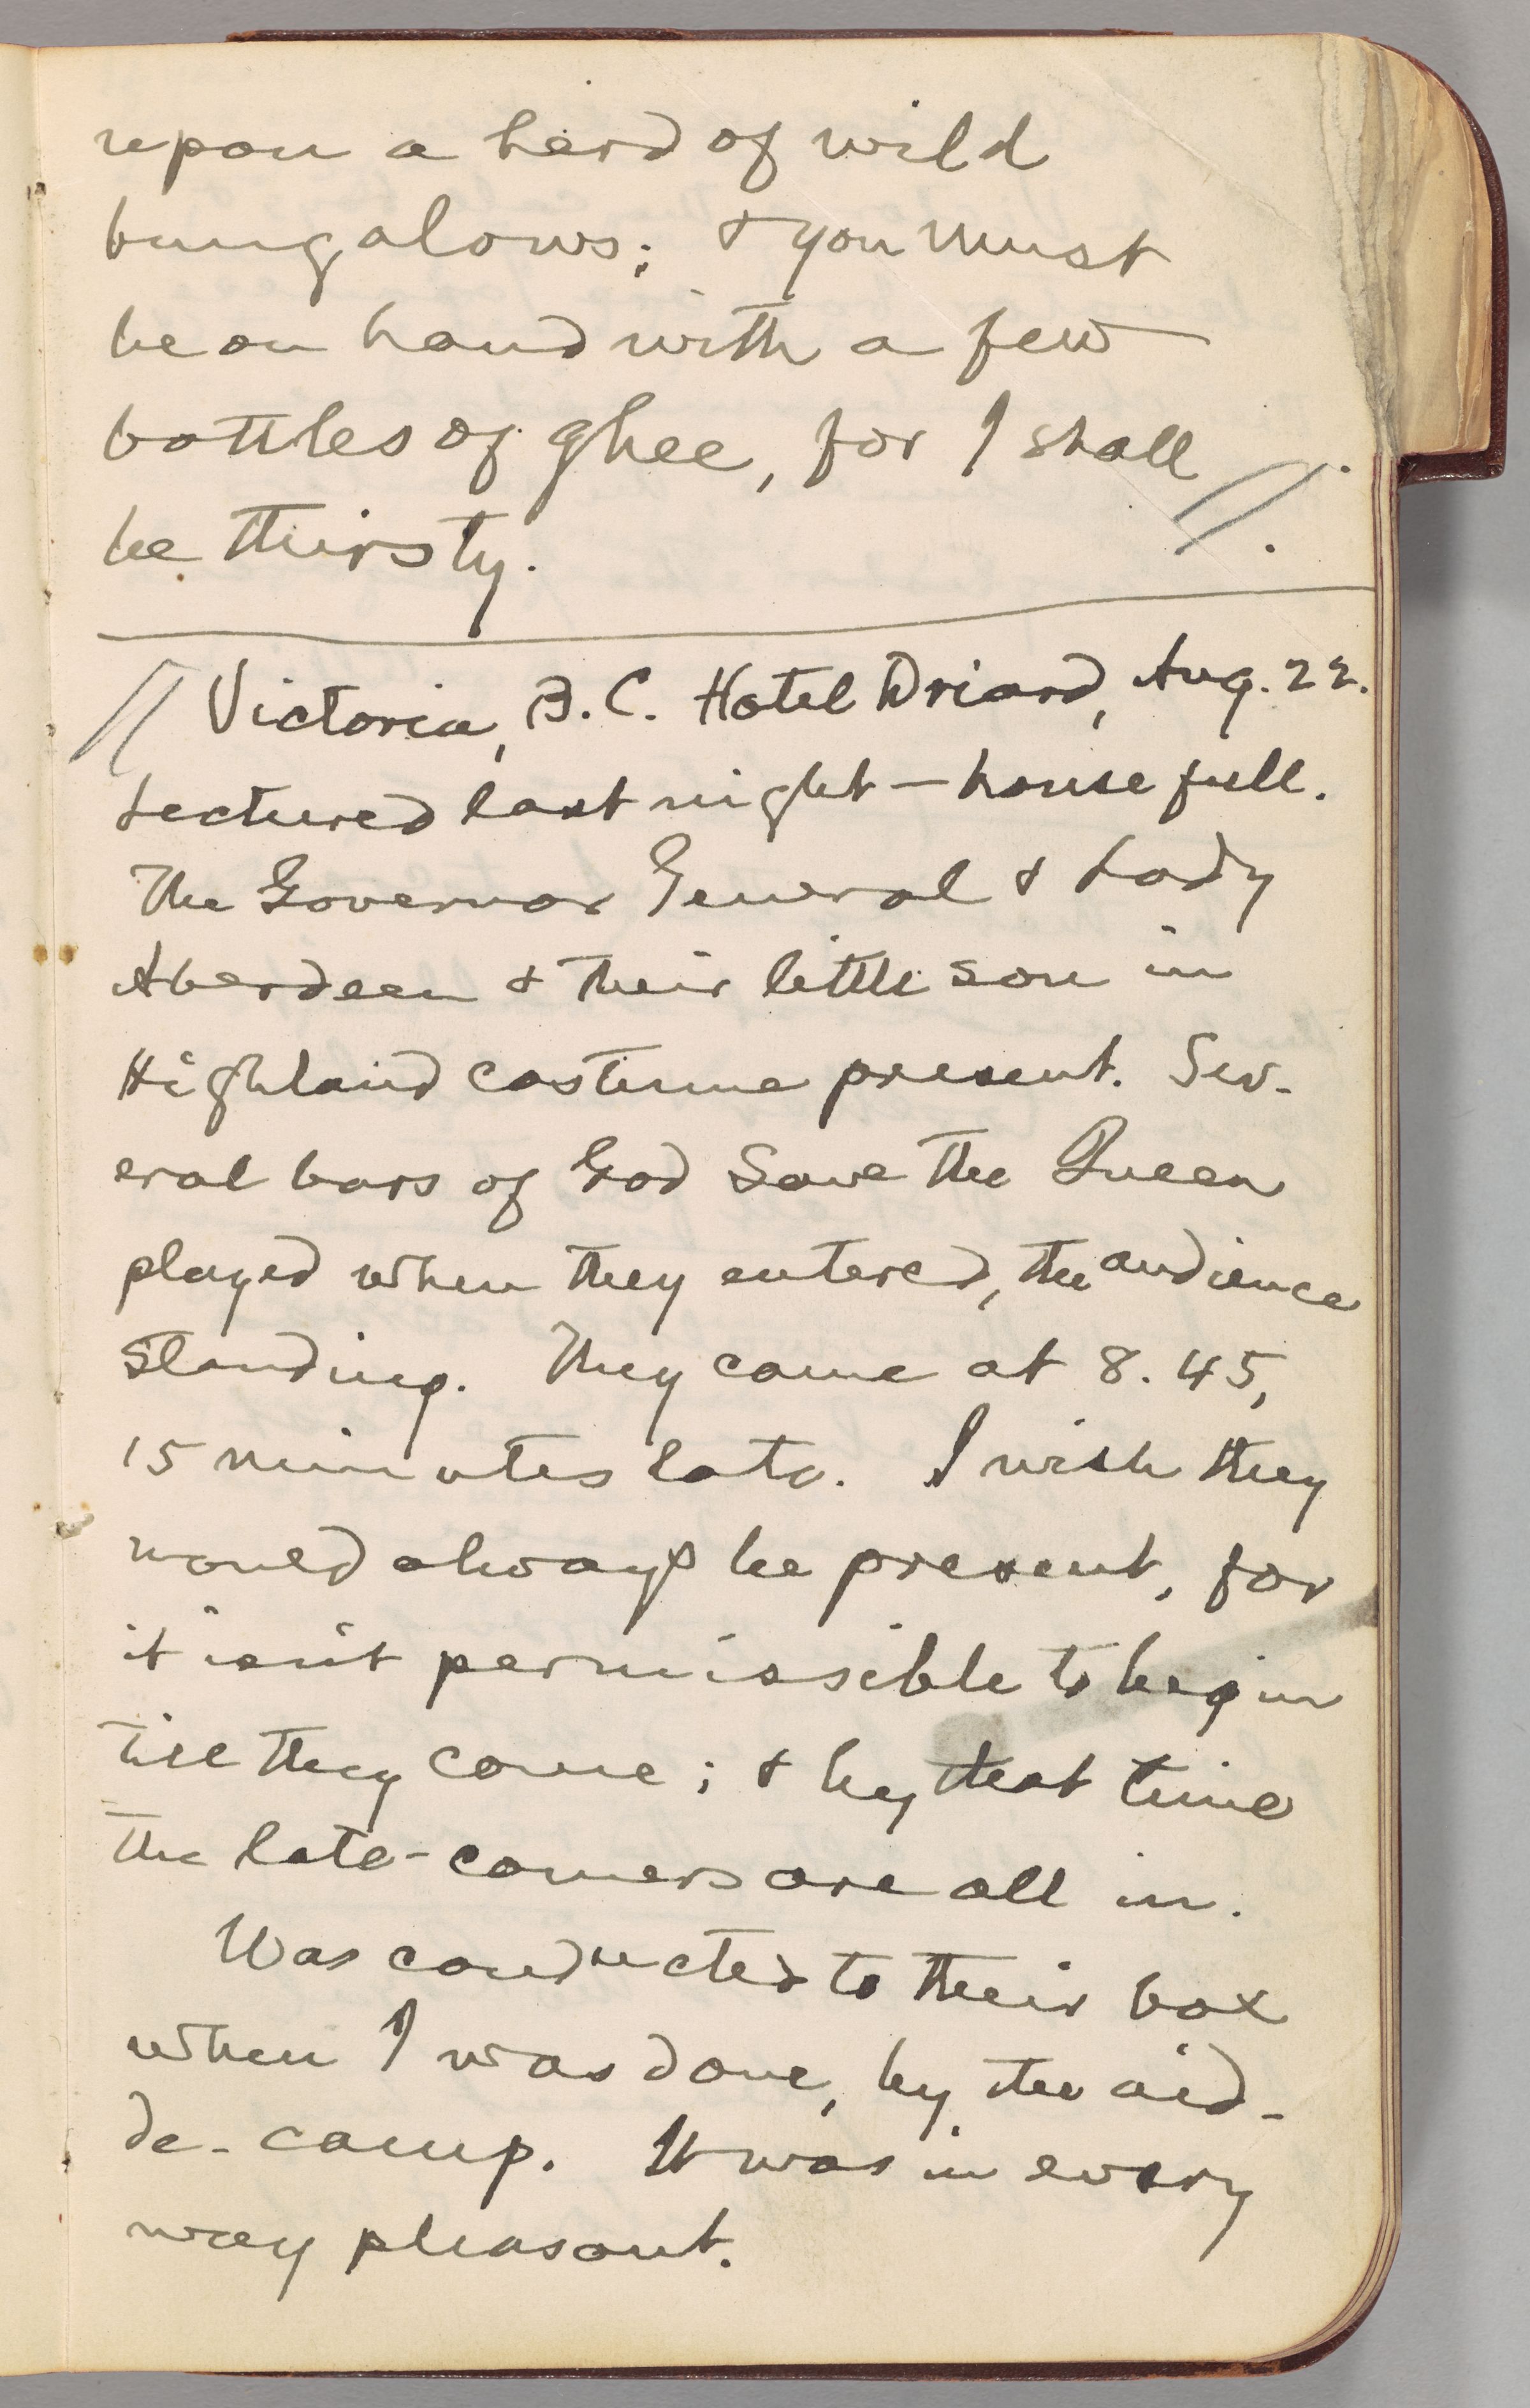 upon a herd of wild
bungalows; & you must
be on hand with a few
bottles of ghee, for I shall
be thirsty.
Victoria, B.C. Hotel Driard, Aug. 22.
Lectured last night — house full.
The Governor General & Lady
Aberdeen & their little son in
Highland costume present. Sev-
eral bars of God Save the Queen
played when they entered, the audience
standing. They came at 8.45,
15 minutes late. I wish they
would always be present, for
it isn't permissible to begin
till they come; & by that time
the late-comers are all in.
Was conducted to their box
when I was done, by the aid-
de-camp. It was in every
way pleasant.